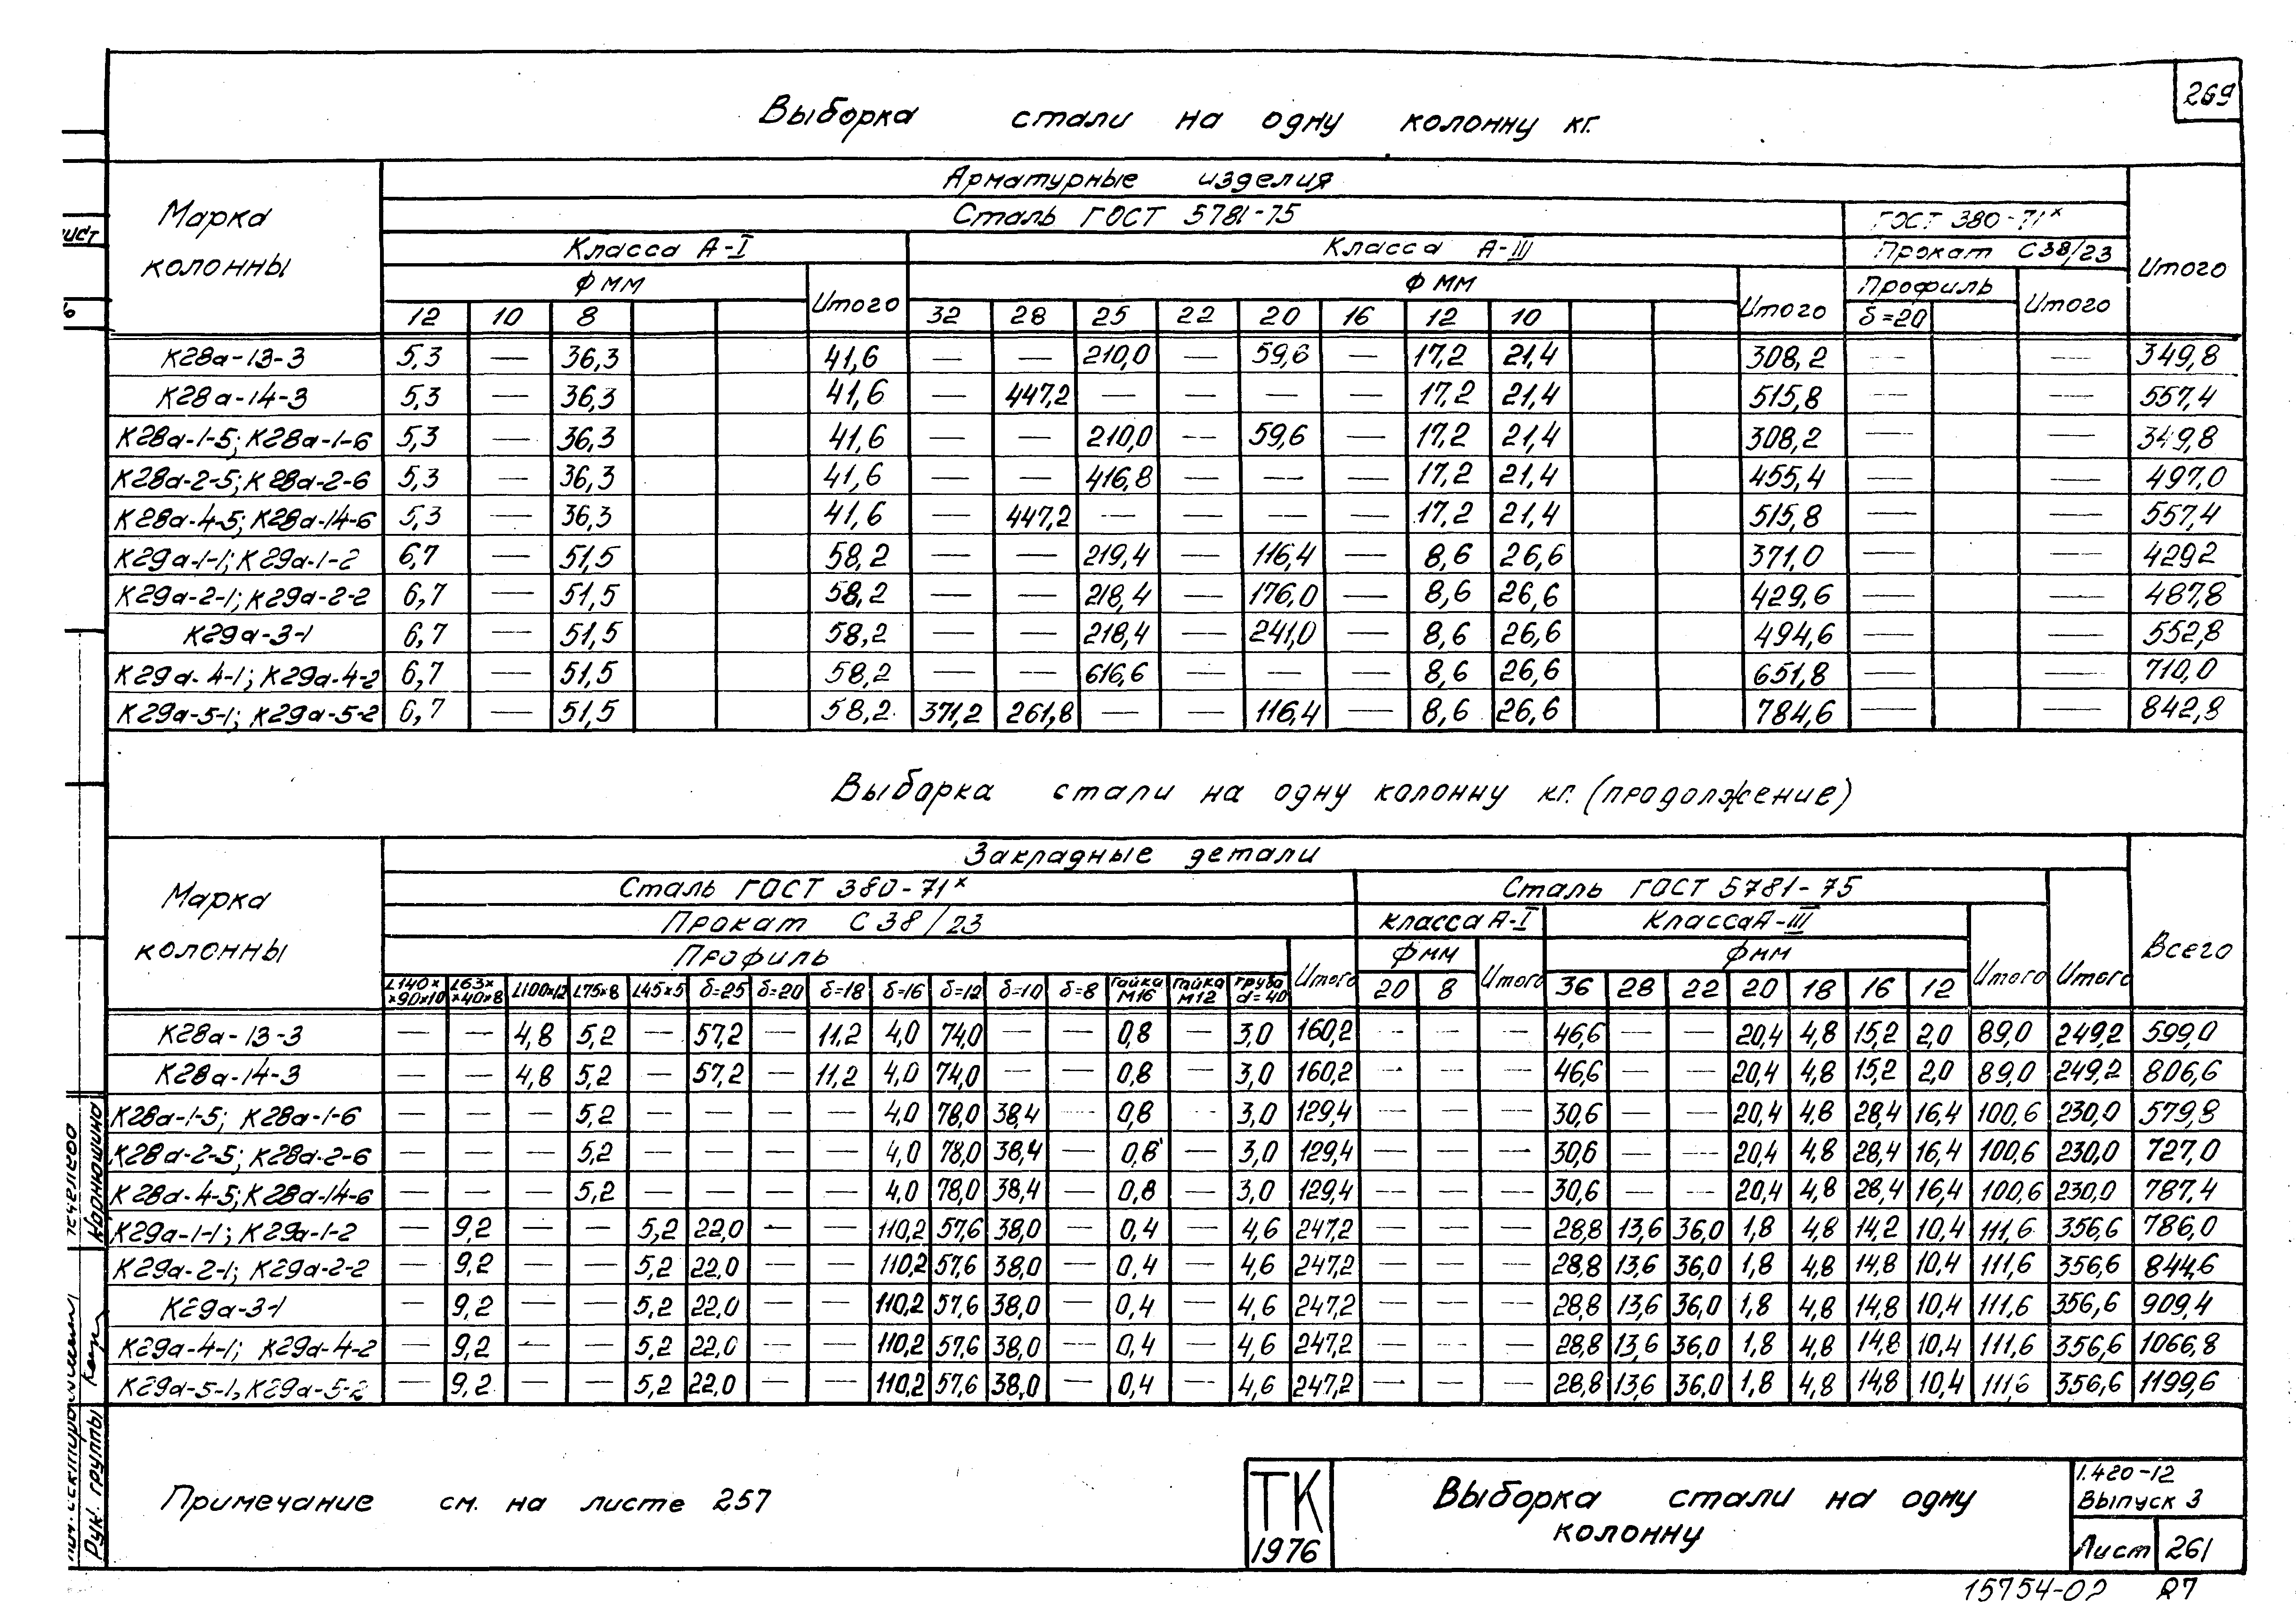 269
Выборка стали на одну колонну кг.
Марка колонны
Арматурные изделия
Итого
Сталь ГОСТ 5781-75
ГОСТ 380-71х
Класса А-I
Класса А-III
Прокат С38/23
Ф мм
Итого
Ф мм
Итого
Профиль
Итого
12 10 8 32 28 25 22 20 16 12 10 δ=20
К28а-13-3 5,3 — 36,3 41,6 — — 210,0 — 59,6 — 17,2 21,4 308,2 — — 349,8
К28а-14-3 5,3 — 36,3 41,6 — 447,2 — — — — 17,2 21,4 515,8 — — 557,4
К28а-1-5; К28а-1-6 5,3 — 36,3 41,6 — — 210,0 — 59,6 — 17,2 21,4 308,2 — — 349,8
К28а-2-5; К28а-2-6 5,3 — 36,3 41,6 — — 416,8 — — — 17,2 21,4 455,4 — — 497,0
К28а-4-5; К28а-14-6 5,3 — 36,3 41,6 — 447,2 — — — — 17,2 21,4 515,8 — — 557,4
К29а-1-1; К29а-1-2 6,7 — 51,5 58,2 — — 219,4 — 116,4 — 8,6 26,6 371,0 — — 4292
К29а-2-1; К29а-2-2 6,7 — 51,5 58,2 — — 218,4 — 176,0 — 8,6 26,6 429,6 — — 487,8
К29а-3-1 6,7 — 51,5 58,2 — — 218,4 — 241,0 — 8,6 26,6 494,6 — — 552,8
К29а-4-1; К29а-4-2 6,7 — 51,5 58,2 — — 616,6 — — — 8,6 26,6 651,8 — — 710,0
К29а-5-1; К29а-5-2 6,7 — 51,5 58,2 371,2 261,8 — — 116,4 — 8,6 26,6 784,6 — — 842,8
Выборка стали на одну колонну кг. (продолжение)
Марка колонны
Закладные детали
Всего
Сталь ГОСТ 380-71х
Сталь ГОСТ 5781-75
Итого
Прокат С38/23
класса А-I
Класса А-III
Итого
Профиль
Итого
Фмм
Итого
Фмм
L140××90×10 L63××40×8 L100×12 L75×8 L45×5 δ=25 δ=20 δ=18 δ=16 δ=12 δ=10 δ=8 Гайка М16 Гайка М12 труба d=40 20 8 36 28 22 20 18 16 12
К28а-13-3 — — 4,8 5,2 — 57,2 — 11,2 4,0 74,0 — — 0,8 — 3,0 160,2 — — — 46,6 — — 20,4 4,8 15,2 2,0 89,0 249,2 599,0
К28а-14-3 — — 4,8 5,2 — 57,2 — 11,2 4,0 74,0 — — 0,8 — 3,0 160,2 — — — 46,6 — — 20,4 4,8 15,2 2,0 89,0 249,2 806,6
К28а-1-5; К28а-1-6 — — — 5,2 — — — — 4,0 78,0 38,4 — 0,8 — 3,0 129,4 — — — 30,6 — — 20,4 4,8 28,4 16,4 100,6 230,0 579,8
К28а-2-5; К28а-2-6 — — — 5,2 — — — — 4,0 78,0 38,4 — 0,8 — 3,0 129,4 — — — 30,6 — — 20,4 4,8 28,4 16,4 100,6 230,0 727,0
К28а-4-5; К28а-14-6 — — — 5,2 — — — — 4,0 78,0 38,4 — 0,8 — 3,0 129,4 — — — 30,6 — — 20,4 4,8 28,4 16,4 100,6 230,0 787,4
К29а-1-1; К29а-1-2 — 9,2 — — 5,2 22,0 — — 110,2 57,6 38,0 — 0,4 — 4,6 247,2 — — — 28,8 13,6 36,0 1,8 4,8 14,2 10,4 111,6 356,6 786,0
К29а-2-1; К29а-2-2 — 9,2 — — 5,2 22,0 — — 110,2 57,6 38,0 — 0,4 — 4,6 247,2 — — — 28,8 13,6 36,0 1,8 4,8 14,8 10,4 111,6 356,6 844,6
К29а-3-1 — 9,2 — — 5,2 22,0 — — 110,2 57,6 38,0 — 0,4 — 4,6 247,2 — — — 28,8 13,6 36,0 1,8 4,8 14,8 10,4 111,6 356,6 909,4
К29а-4-1; К29а-4-2 — 9,2 — — 5,2 22,0 — — 110,2 57,6 38,0 — 0,4 — 4,6 247,2 — — — 28,8 13,6 36,0 1,8 4,8 14,8 10,4 111,6 356,6 1066,8
К29а-5-1, К29а-5-2 — 9,2 — — 5,2 22,0 — — 110,2 57,6 38,0 — 0,4 — 4,6 247,2 — — — 28,8 13,6 36,0 1,8 4,8 14,8 10,4 111,6 356,6 1199,6
Примечание см. на листе 257
ТК
1976
Выборка стали на одну
колонну
1.420-12
Выпуск 3
Лист 261
15754-02 27
Рук. группы
Карнюшина